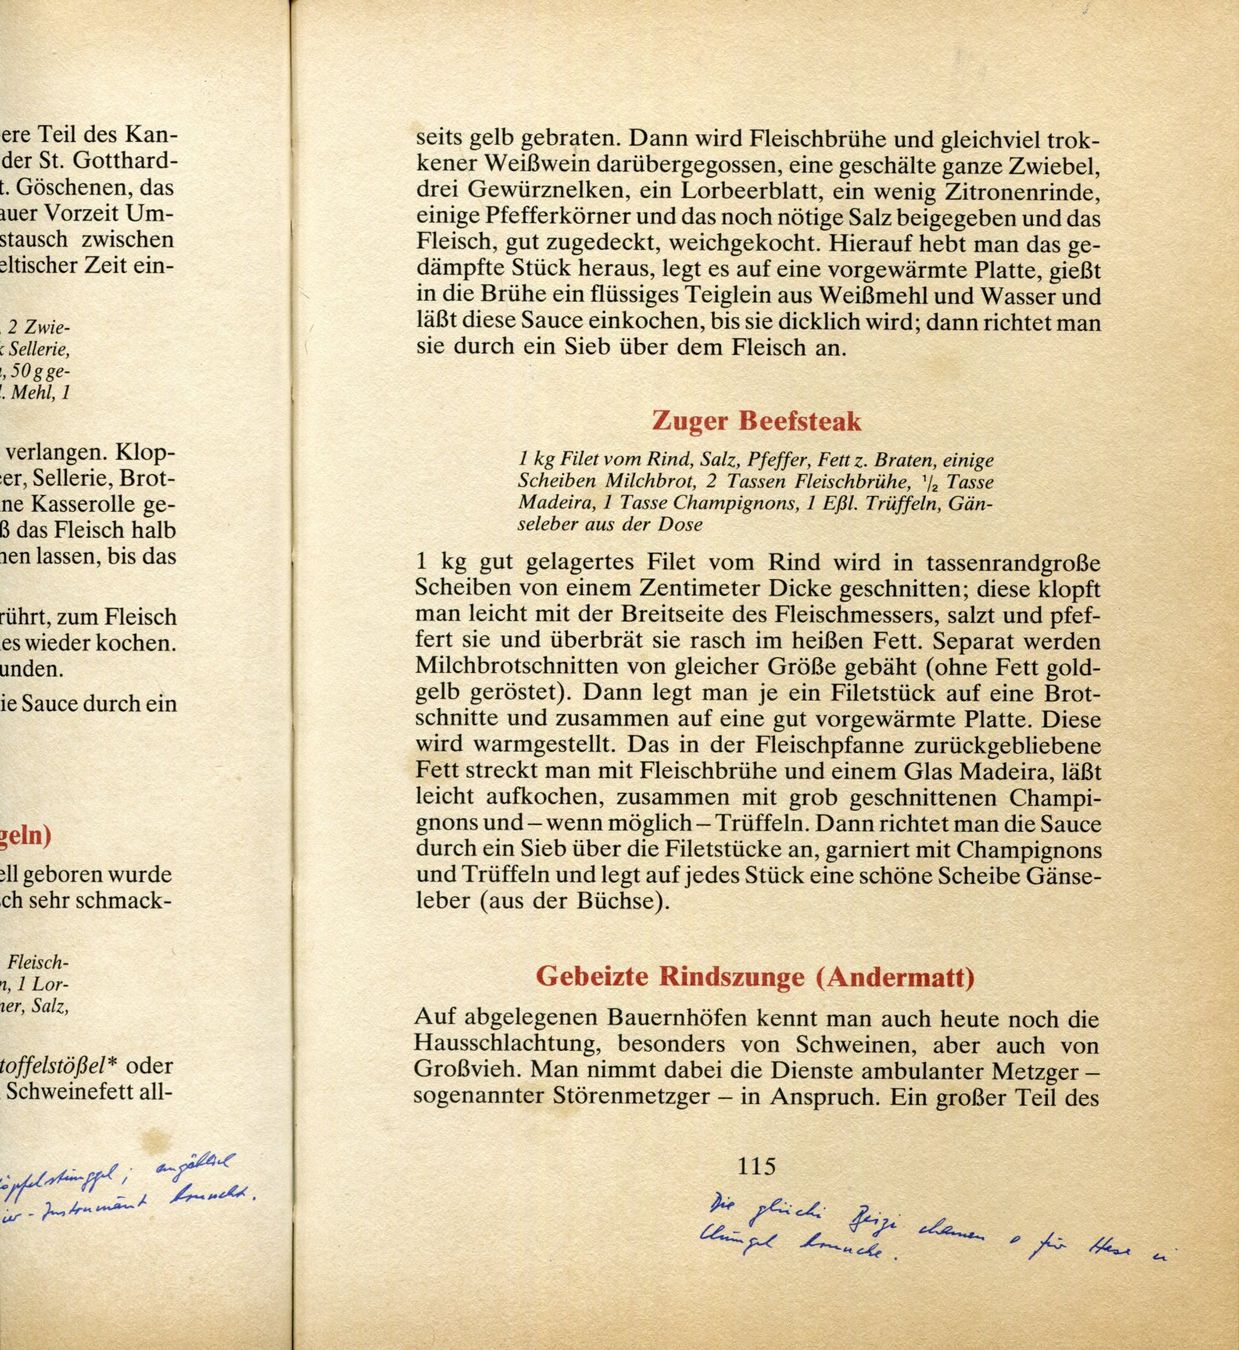 ere Teil des Kan-
der St. Gotthard-
t. Göschenen, das
auer Vorzeit Um-
stausch zwischen
eltischer Zeit ein-
2 Zwie-
k Sellerie,
, 50 g ge-
l. Mehl, 1
verlangen. Klop-
eer, Sellerie, Brot-
ne Kasserolle ge-
ß das Fleisch halb
hen lassen, bis das
rührt, zum Fleisch
es wieder kochen.
unden.
ie Sauce durch ein
geln)
ell geboren wurde
ch sehr schmack-
Fleisch-
n, 1 Lor-
ner, Salz,
toffelstößel* oder
Schweinefett all-
öpfelstünggel; angäblich
ier-Instrumänt bruucht.
seits gelb gebraten. Dann wird Fleischbrühe und gleichviel trok-
kener Weißwein darübergegossen, eine geschälte ganze Zwiebel,
drei Gewürznelken, ein Lorbeerblatt, ein wenig Zitronenrinde,
einige Pfefferkörner und das noch nötige Salz beigegeben und das
Fleisch, gut zugedeckt, weichgekocht. Hierauf hebt man das ge-
dämpfte Stück heraus, legt es auf eine vorgewärmte Platte, gießt
in die Brühe ein flüssiges Teiglein aus Weißmehl und Wasser und
läßt diese Sauce einkochen, bis sie dicklich wird; dann richtet man
sie durch ein Sieb über dem Fleisch an.
Zuger Beefsteak
1 kg Filet vom Rind, Salz, Pfeffer, Fett z. Braten, einige
Scheiben Milchbrot, 2 Tassen Fleischbrühe, 1/2 Tasse
Madeira, 1 Tasse Champignons, 1 Eßl. Trüffeln, Gän-
seleber aus der Dose
1 kg gut gelagertes Filet vom Rind wird in tassenrandgroße
Scheiben von einem Zentimeter Dicke geschnitten; diese klopft
man leicht mit der Breitseite des Fleischmessers, salzt und pfef-
fert sie und überbrät sie rasch im heißen Fett. Separat werden
Milchbrotschnitten von gleicher Größe gebäht (ohne Fett gold-
gelb geröstet). Dann legt man je ein Filetstück auf eine Brot-
schnitte und zusammen auf eine gut vorgewärmte Platte. Diese
wird warmgestellt. Das in der Fleischpfanne zurückgebliebene
Fett streckt man mit Fleischbrühe und einem Glas Madeira, läßt
leicht aufkochen, zusammen mit grob geschnittenen Champi-
gnons und – wenn möglich – Trüffeln. Dann richtet man die Sauce
durch ein Sieb über die Filetstücke an, garniert mit Champignons
und Trüffeln und legt auf jedes Stück eine schöne Scheibe Gänse-
leber (aus der Büchse).
Gebeizte Rindszunge (Andermatt)
Auf abgelegenen Bauernhöfen kennt man auch heute noch die
Hausschlachtung, besonders von Schweinen, aber auch von
Großvieh. Man nimmt dabei die Dienste ambulanter Metzger –
sogenannter Störenmetzger – in Anspruch. Ein großer Teil des
115
Die gliichi Beizi chamen o für Hase u
Chüngel bruuche.